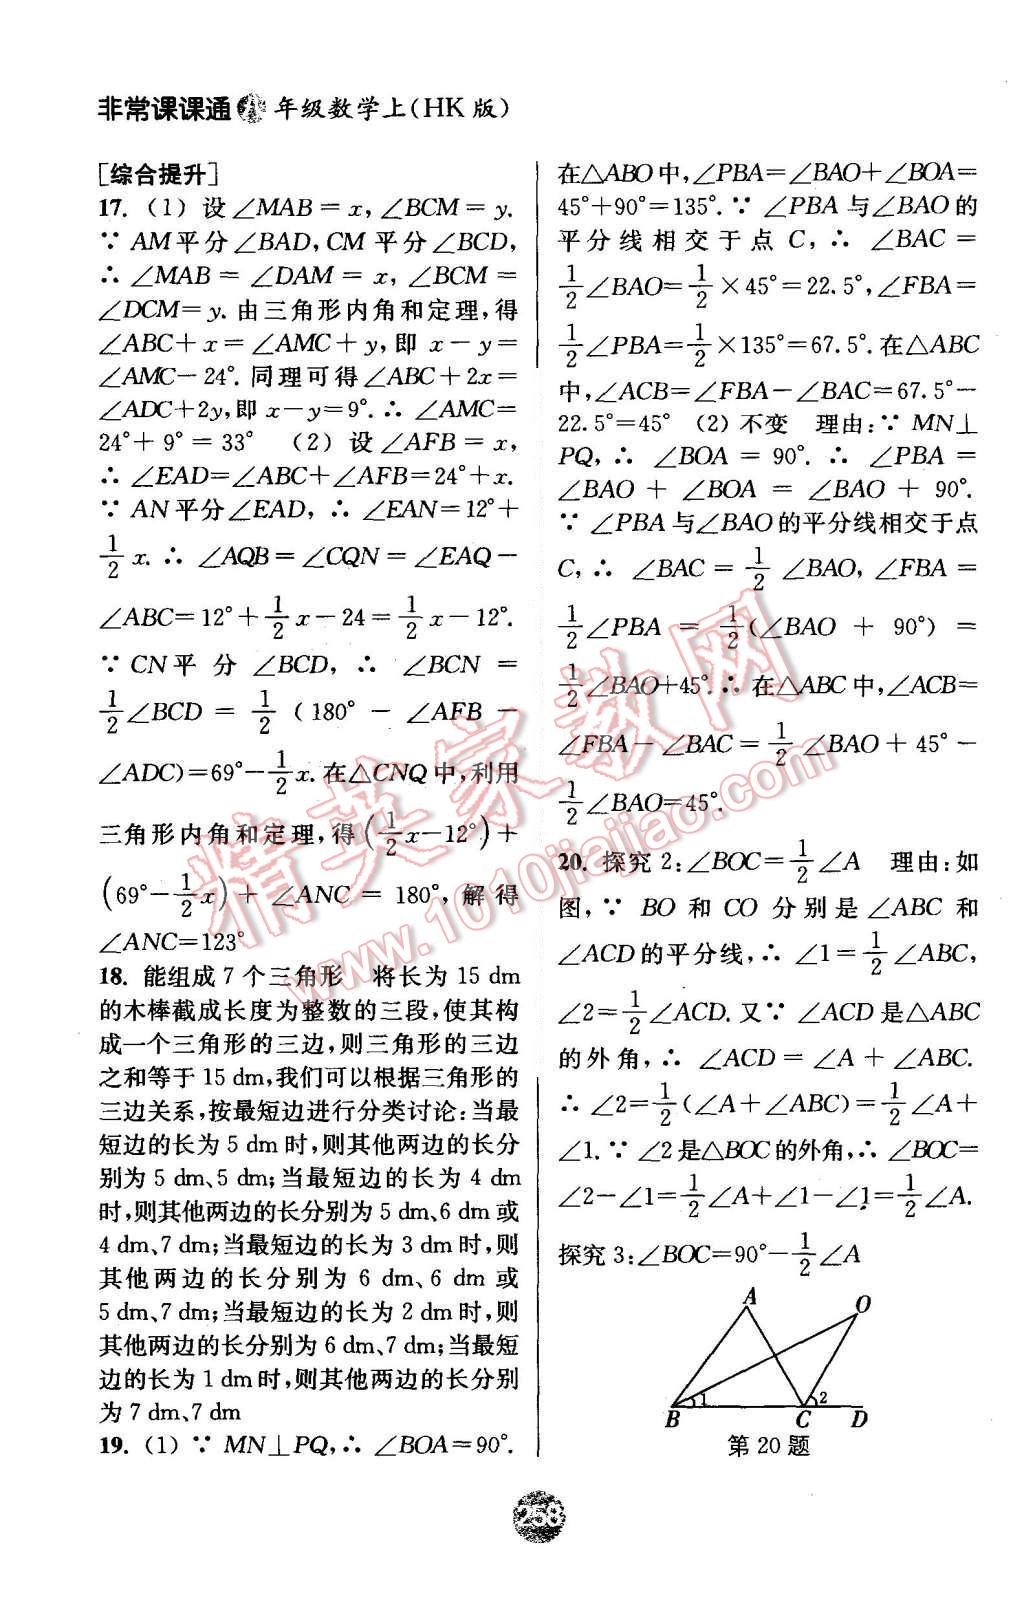 非常课课通 年级数学上(HK版)
[综合提升]
17. (1) 设∠MAB=x,∠BCM=y.
∵ AM平分∠BAD,CM平分∠BCD,
∴ ∠MAB=∠DAM=x,∠BCM=
∠DCM=y. 由三角形内角和定理,得
∠ABC+x=∠AMC+y,即 x-y=
∠AMC-24°. 同理可得∠ABC+2x=
∠ADC+2y,即 x-y=9°. ∴ ∠AMC=
24°+9°=33° (2) 设∠AFB=x,
∴ ∠EAD=∠ABC+∠AFB=24°+x.
∵ AN平分∠EAD, ∴ ∠EAN=12°+
1/2 x. ∴ ∠AQB=∠CQN=∠EAQ-
∠ABC=12°+1/2 x-24=1/2 x-12°.
∵ CN平分∠BCD, ∴ ∠BCN=
1/2∠BCD=1/2(180°-∠AFB-
∠ADC)=69°-1/2 x. 在△CNQ中,利用
三角形内角和定理,得(1/2 x-12°)+
(69°-1/2 x)+∠ANC=180°,解得
∠ANC=123°
18. 能组成7个三角形 将长为15 dm
的木棒截成长度为整数的三段,使其构
成一个三角形的三边,则三角形的三边
之和等于15 dm,我们可以根据三角形的
三边关系,按最短边进行分类讨论:当最
短边的长为5 dm时,则其他两边的长分
别为5 dm、5 dm;当最短边的长为4 dm
时,则其他两边的长分别为5 dm、6 dm或
4 dm、7 dm;当最短边的长为3 dm时,则
其他两边的长分别为6 dm、6 dm或
5 dm、7 dm;当最短边的长为2 dm时,则
其他两边的长分别为6 dm、7 dm;当最短
边的长为1 dm时,则其他两边的长分别
为7 dm、7 dm
19. (1) ∵ MN⊥PQ,∴ ∠BOA=90°.
在△ABO中,∠PBA=∠BAO+∠BOA=
45°+90°=135°. ∵ ∠PBA与∠BAO的
平分线相交于点C, ∴ ∠BAC=
1/2∠BAO=1/2×45°=22.5°,∠FBA=
1/2∠PBA=1/2×135°=67.5°. 在△ABC
中,∠ACB=∠FBA-∠BAC=67.5°-
22.5°=45° (2) 不变 理由:∵ MN⊥
PQ, ∴ ∠BOA=90°. ∴ ∠PBA=
∠BAO+∠BOA=∠BAO+90°.
∵ ∠PBA与∠BAO的平分线相交于点
C, ∴ ∠BAC=1/2∠BAO,∠FBA=
1/2∠PBA=1/2(∠BAO+90°)=
1/2∠BAO+45°. ∴ 在△ABC中,∠ACB=
∠FBA-∠BAC=1/2∠BAO+45°-
1/2∠BAO=45°.
20. 探究2:∠BOC=1/2∠A 理由:如
图, ∵ BO和CO分别是∠ABC和
∠ACD的平分线,∴ ∠1=1/2∠ABC,
∠2=1/2∠ACD. 又∵ ∠ACD是△ABC
的外角,∴ ∠ACD=∠A+∠ABC.
∴ ∠2=1/2(∠A+∠ABC)=1/2∠A+
∠1. ∵ ∠2是△BOC的外角,∴ ∠BOC=
∠2-∠1=1/2∠A+∠1-∠1=1/2∠A.
探究3:∠BOC=90°-1/2∠A
A
O
1
2
B
C
D
第20题
258
精英家教网
www.1010jiajiao.com